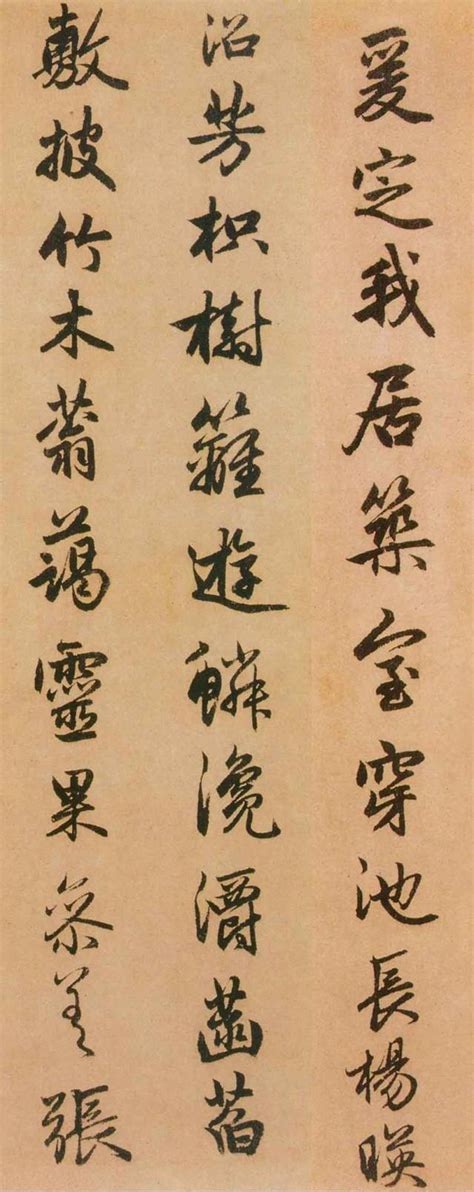 爰定我居築室穿池長楊暎
沼芳枳樹籬遊鱗瀺灂菡萏
敷披竹木蓊藹靈果參差張